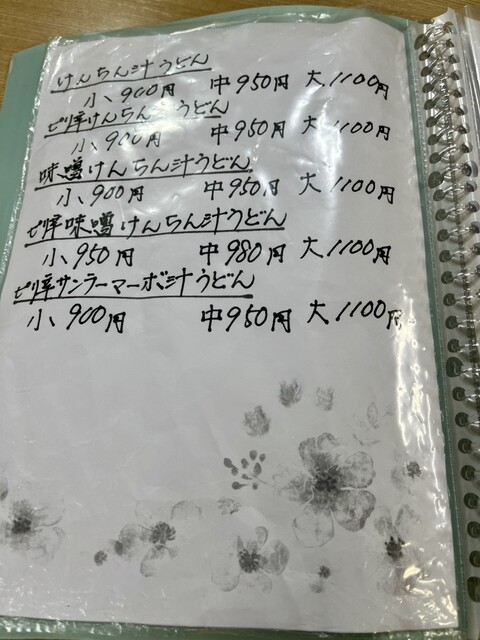 けんちん汁うどん
小 900円 中 950円 大 1100円
ピリ辛けんちん うどん
小 900円 中 950円 大 1100円
味噌けんちん汁うどん
小 900円 中 950円 大 1100円
ピリ辛味噌けんちん汁うどん
小 950円 中 980円 大 1100円
ピリ辛サンラーマーボ汁うどん
小 900円 中 950円 大 1100円